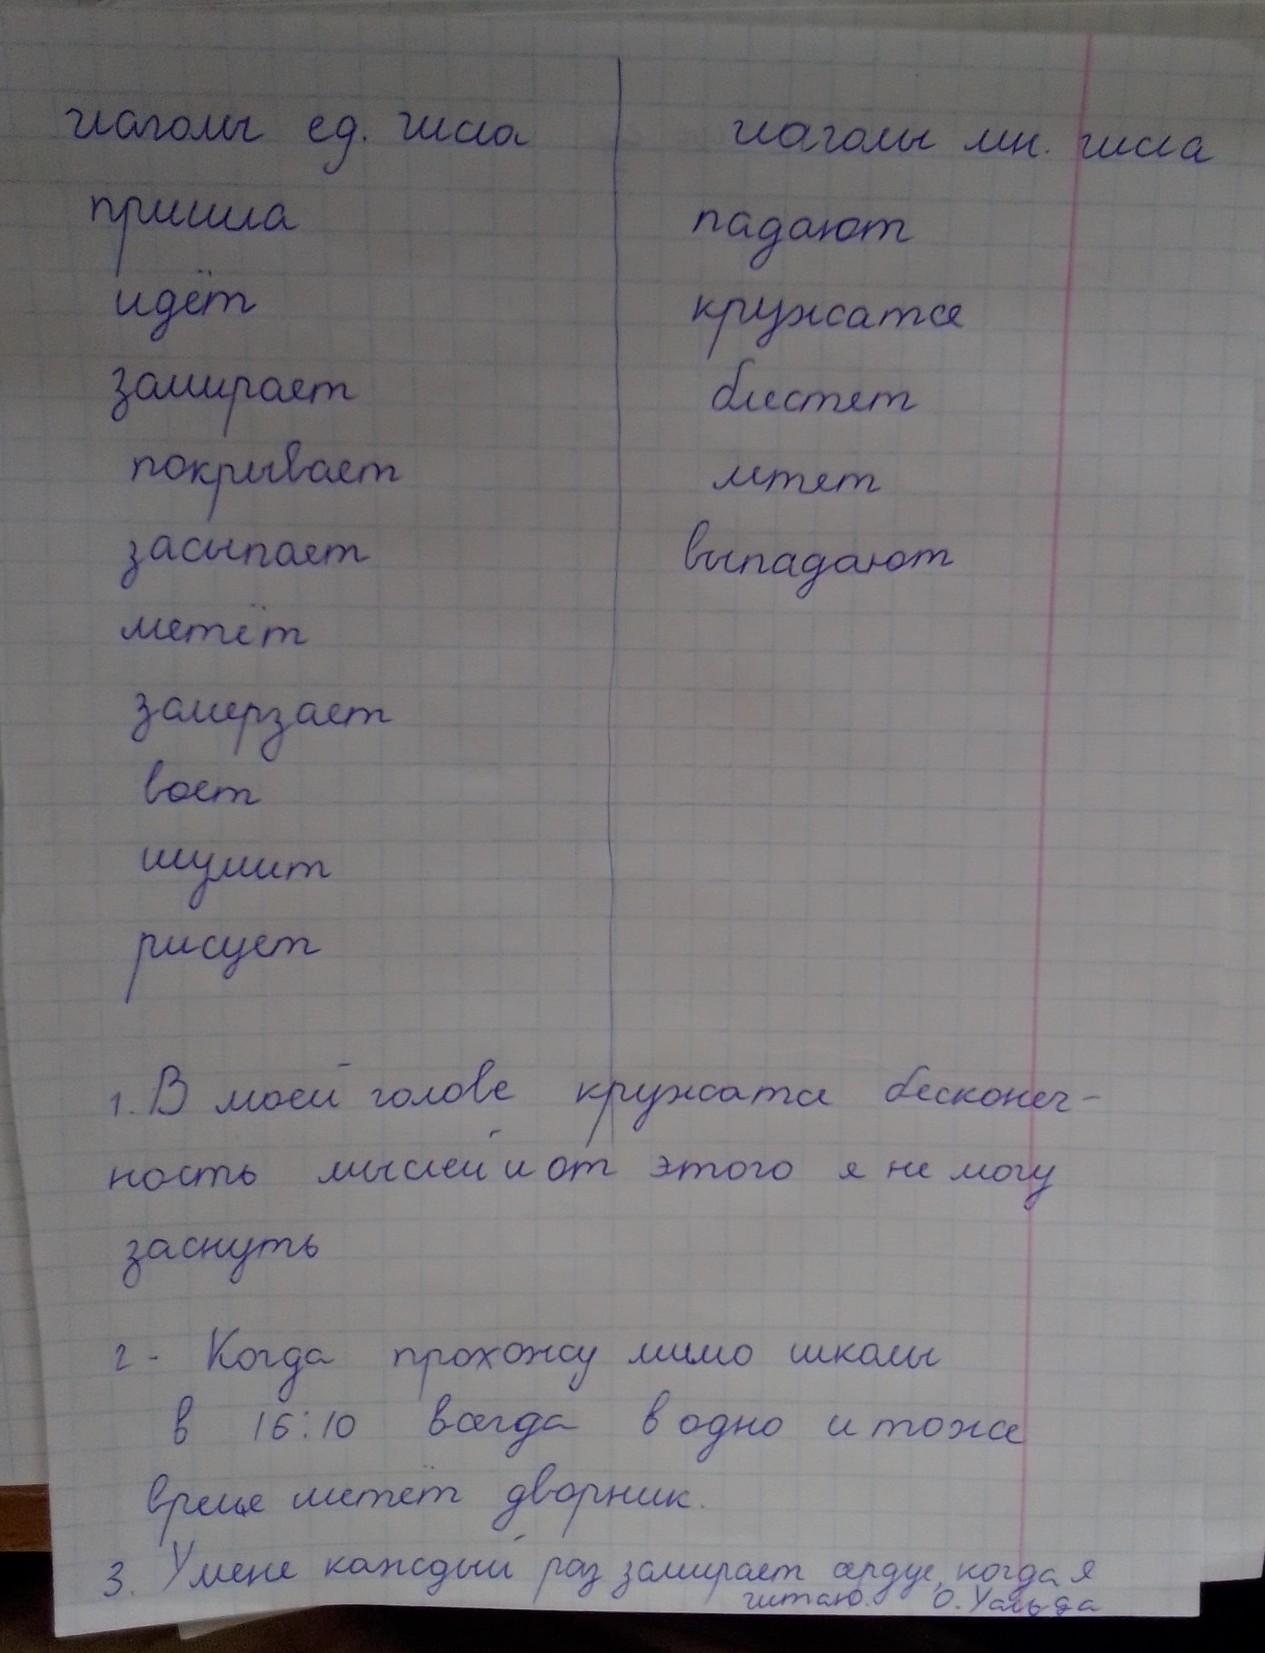 глаголы ед. числа
пришла
идёт
замирает
покрывает
засыпает
метёт
замерзает
воет
шумит
рисует
глаголы мн. числа
падают
кружатся
блестят
летят
выпадают
1. В моей голове кружатся бесконеч-
ность мыслей и от этого я не могу
заснуть
2 - Когда прохожу мимо школы
в 16:10 всегда в одно и тоже
время метёт дворник.
3. У меня каждый раз замирает сердце, когда я
читаю. О. Уальда